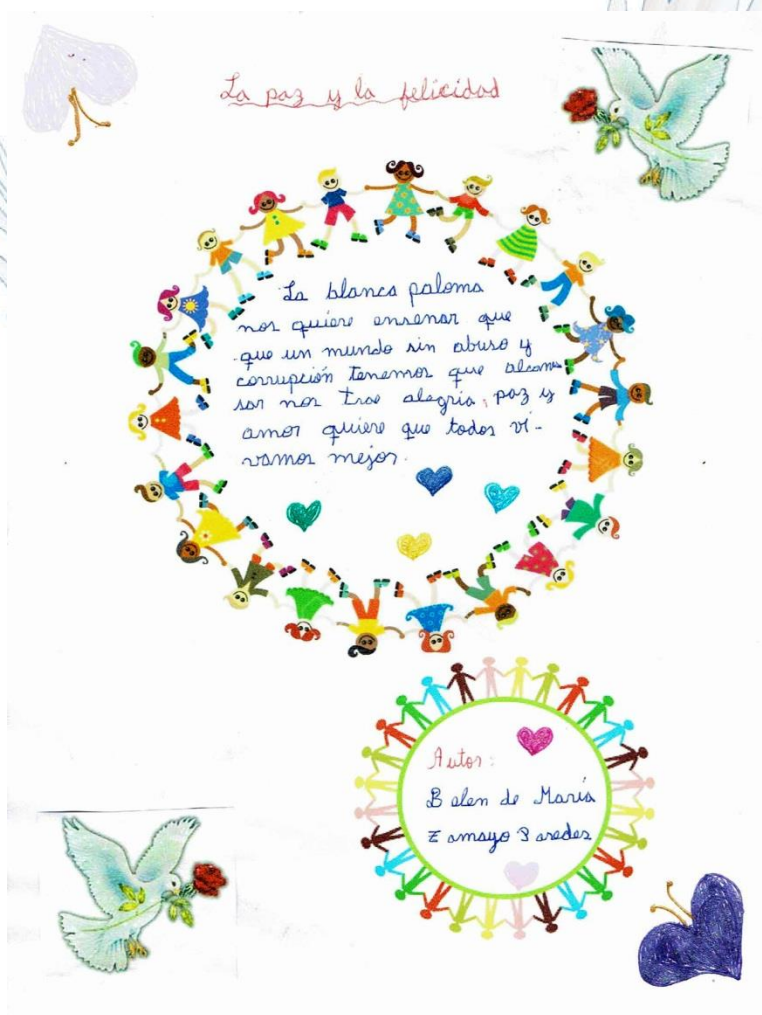 La paz y la felicidad
La blanca paloma
nos quiere ensenar que
que un mundo sin abuso y
corrupción tenemos que alcan
sar nos trae alegria, paz y
amor quiere que todos vi-
vamos mejor.
Autor:
Belen de María
Zamayo Paredes